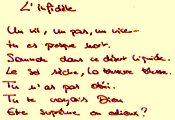 L'Infidèle
Un cri, un pas, un vice...
tu es presque mort.
dans ce désert liquide.
Le sel sèche, la
Tu n'as pas obéi.
Tu te croyais Dieu
Être suprême ou odieux?